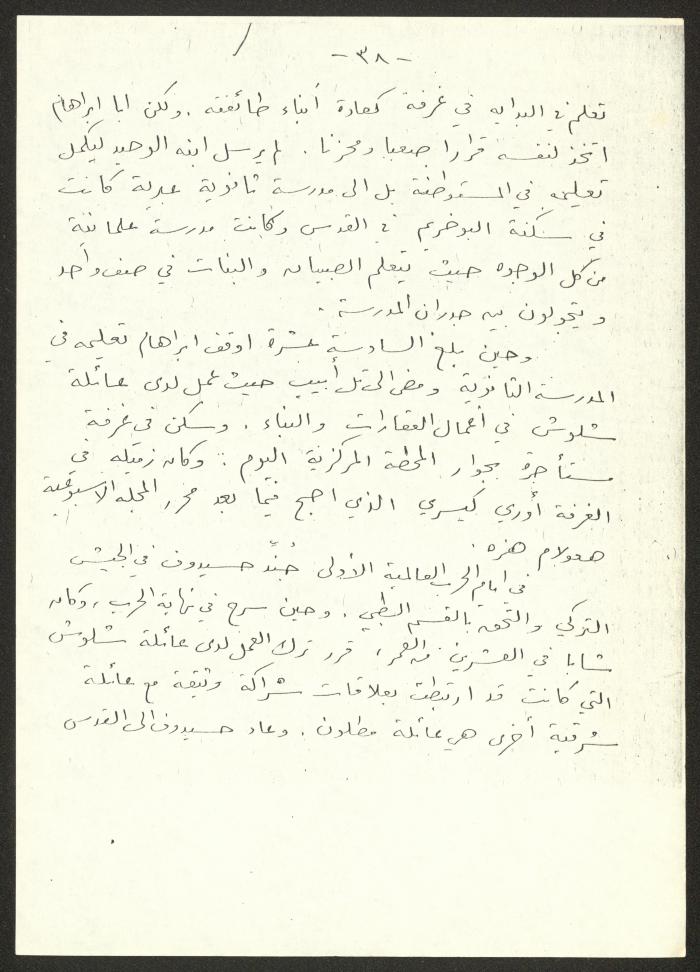 - ٣٨ -
تعلم في البدايه في غرفة كعادة أبناء طائفته . ولكن ابا ابراهام
اتخذ لنفسه قرارا صعبا ومحزنا . لم يرسل ابنه الوحيد ليكمل
تعليمه في المستوطنة بل الى مدرسة ثانوية عبرية كانت
في سكنة البوخريم في القدس وكانت مدرسة علمانية
من كل الوجوه حيث يتعلم الصبيان والبنات في صف واحد
ويتجولون بين جدران المدرسة .
وحين بلغ السادسة عشرة اوقف ابراهام تعليمه في
المدرسة الثانوية ومضى الى تل أبيب حيث عمل لدى عائلة
شلوش في أعمال العقارات والبناء . وسكن في غرفة
مستأجرة بجوار المحطة المركزية اليوم . وكان زميله في
الغرفة أوري كيسري الذي اصبح فيما بعد محرر المجله الاسبوعية
هعولام هزه .
في ايام الحرب العالمية الأولى جُنِّد حسيدوف في الجيش
التركي والتحق بالقسم الطبي . وحين سرح في نهاية الحرب ، وكان
شابا في العشرين من العمر ، قرر ترك العمل لدى عائلة شلوش
التي كانت قد ارتبطت بعلاقات شراكة وثيقة مع عائلة
شرقية أخرى هي عائلة مطلون . وعاد حسيدوف الى القدس